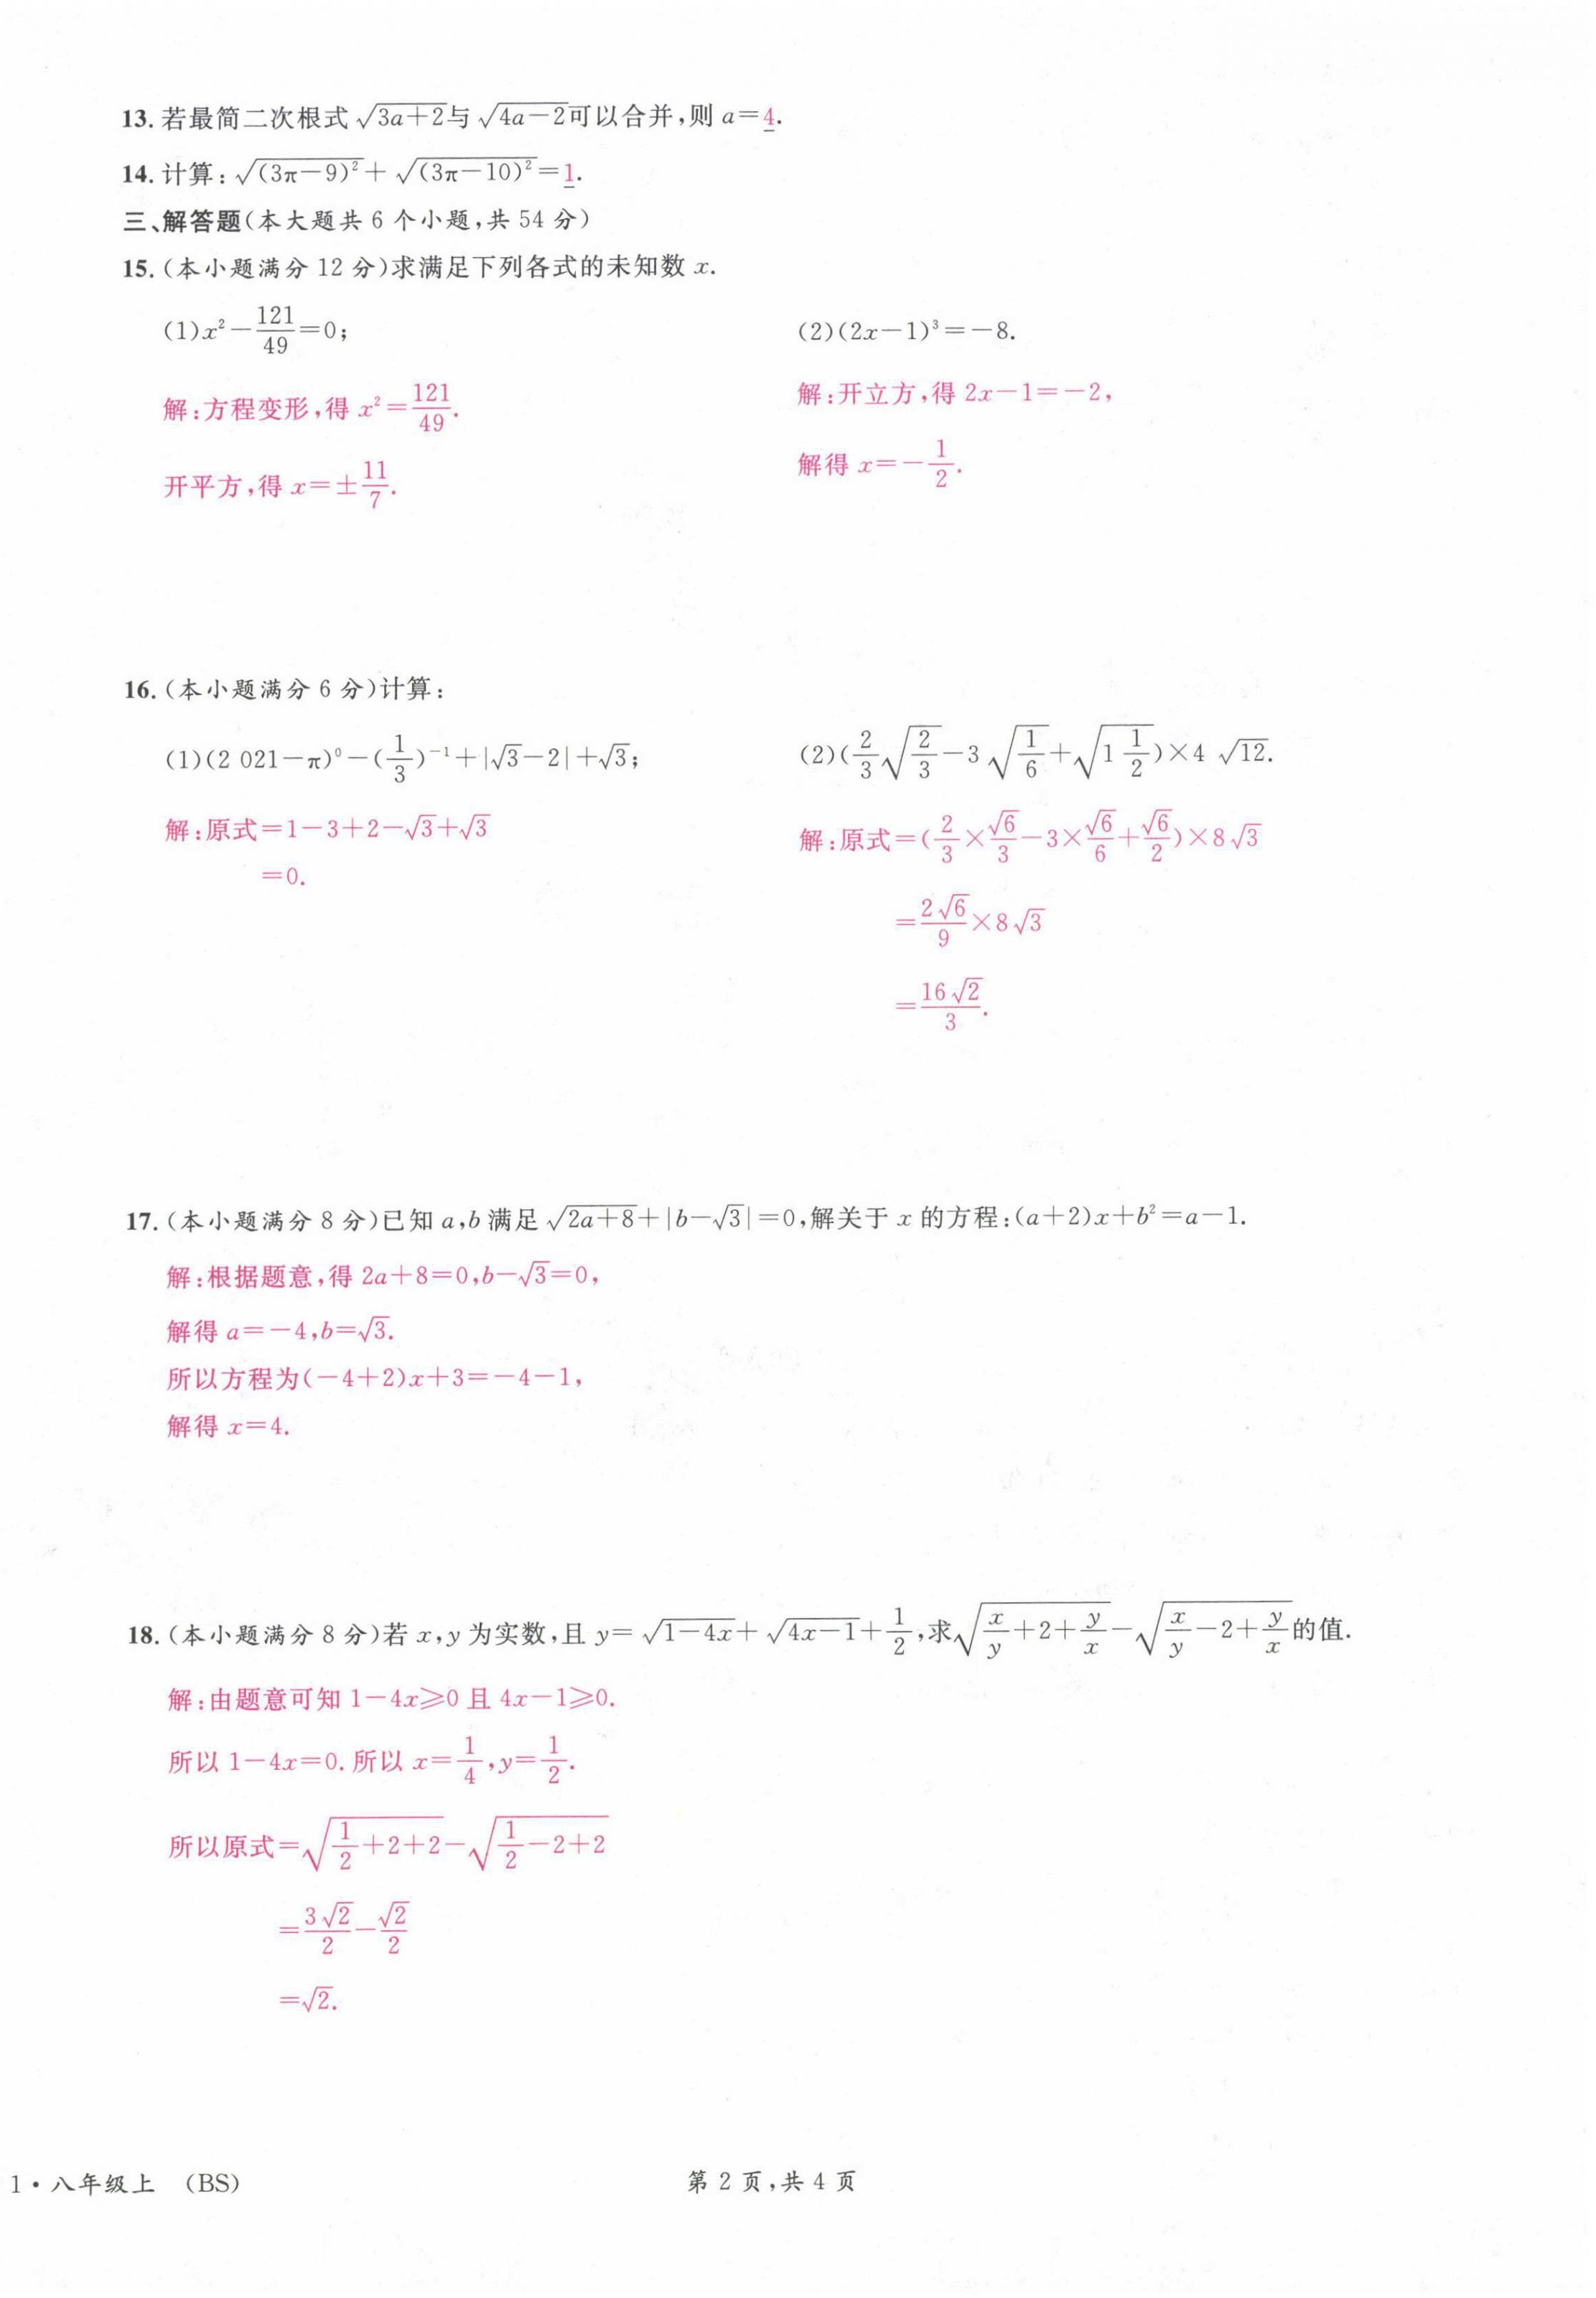 13.若最简二次根式√(3a+2)与√(4a-2)可以合并,则 a=4.
14.计算:√((3π-9)²)+√((3π-10)²)=1.
三、解答题(本大题共 6 个小题,共 54 分)
15.(本小题满分 12 分)求满足下列各式的未知数 x.
(1)x²-121/49=0;
(2)(2x-1)³=-8.
解:方程变形,得 x²=121/49.
解:开立方,得 2x-1=-2,
开平方,得 x=±11/7.
解得 x=-1/2.
16.(本小题满分 6 分)计算:
(1)(2 021-π)⁰-(1/3)⁻¹+|√3-2|+√3;
(2)(2/3√(2/3)-3√(1/6)+√(1 1/2))×4√12.
解:原式=1-3+2-√3+√3
=0.
解:原式=(2/3×√6/3-3×√6/6+√6/2)×8√3
=2√6/9×8√3
=16√2/3.
17.(本小题满分 8 分)已知 a,b 满足√(2a+8)+|b-√3|=0,解关于 x 的方程:(a+2)x+b²=a-1.
解:根据题意,得 2a+8=0,b-√3=0,
解得 a=-4,b=√3.
所以方程为(-4+2)x+3=-4-1,
解得 x=4.
18.(本小题满分 8 分)若 x,y 为实数,且 y=√(1-4x)+√(4x-1)+1/2,求√(x/y+2+y/x)-√(x/y-2+y/x)的值.
解:由题意可知 1-4x≥0 且 4x-1≥0.
所以 1-4x=0.所以 x=1/4,y=1/2.
所以原式=√(1/2+2+2)-√(1/2-2+2)
=3√2/2-√2/2
=√2.
1·八年级上 (BS)
第 2 页,共 4 页